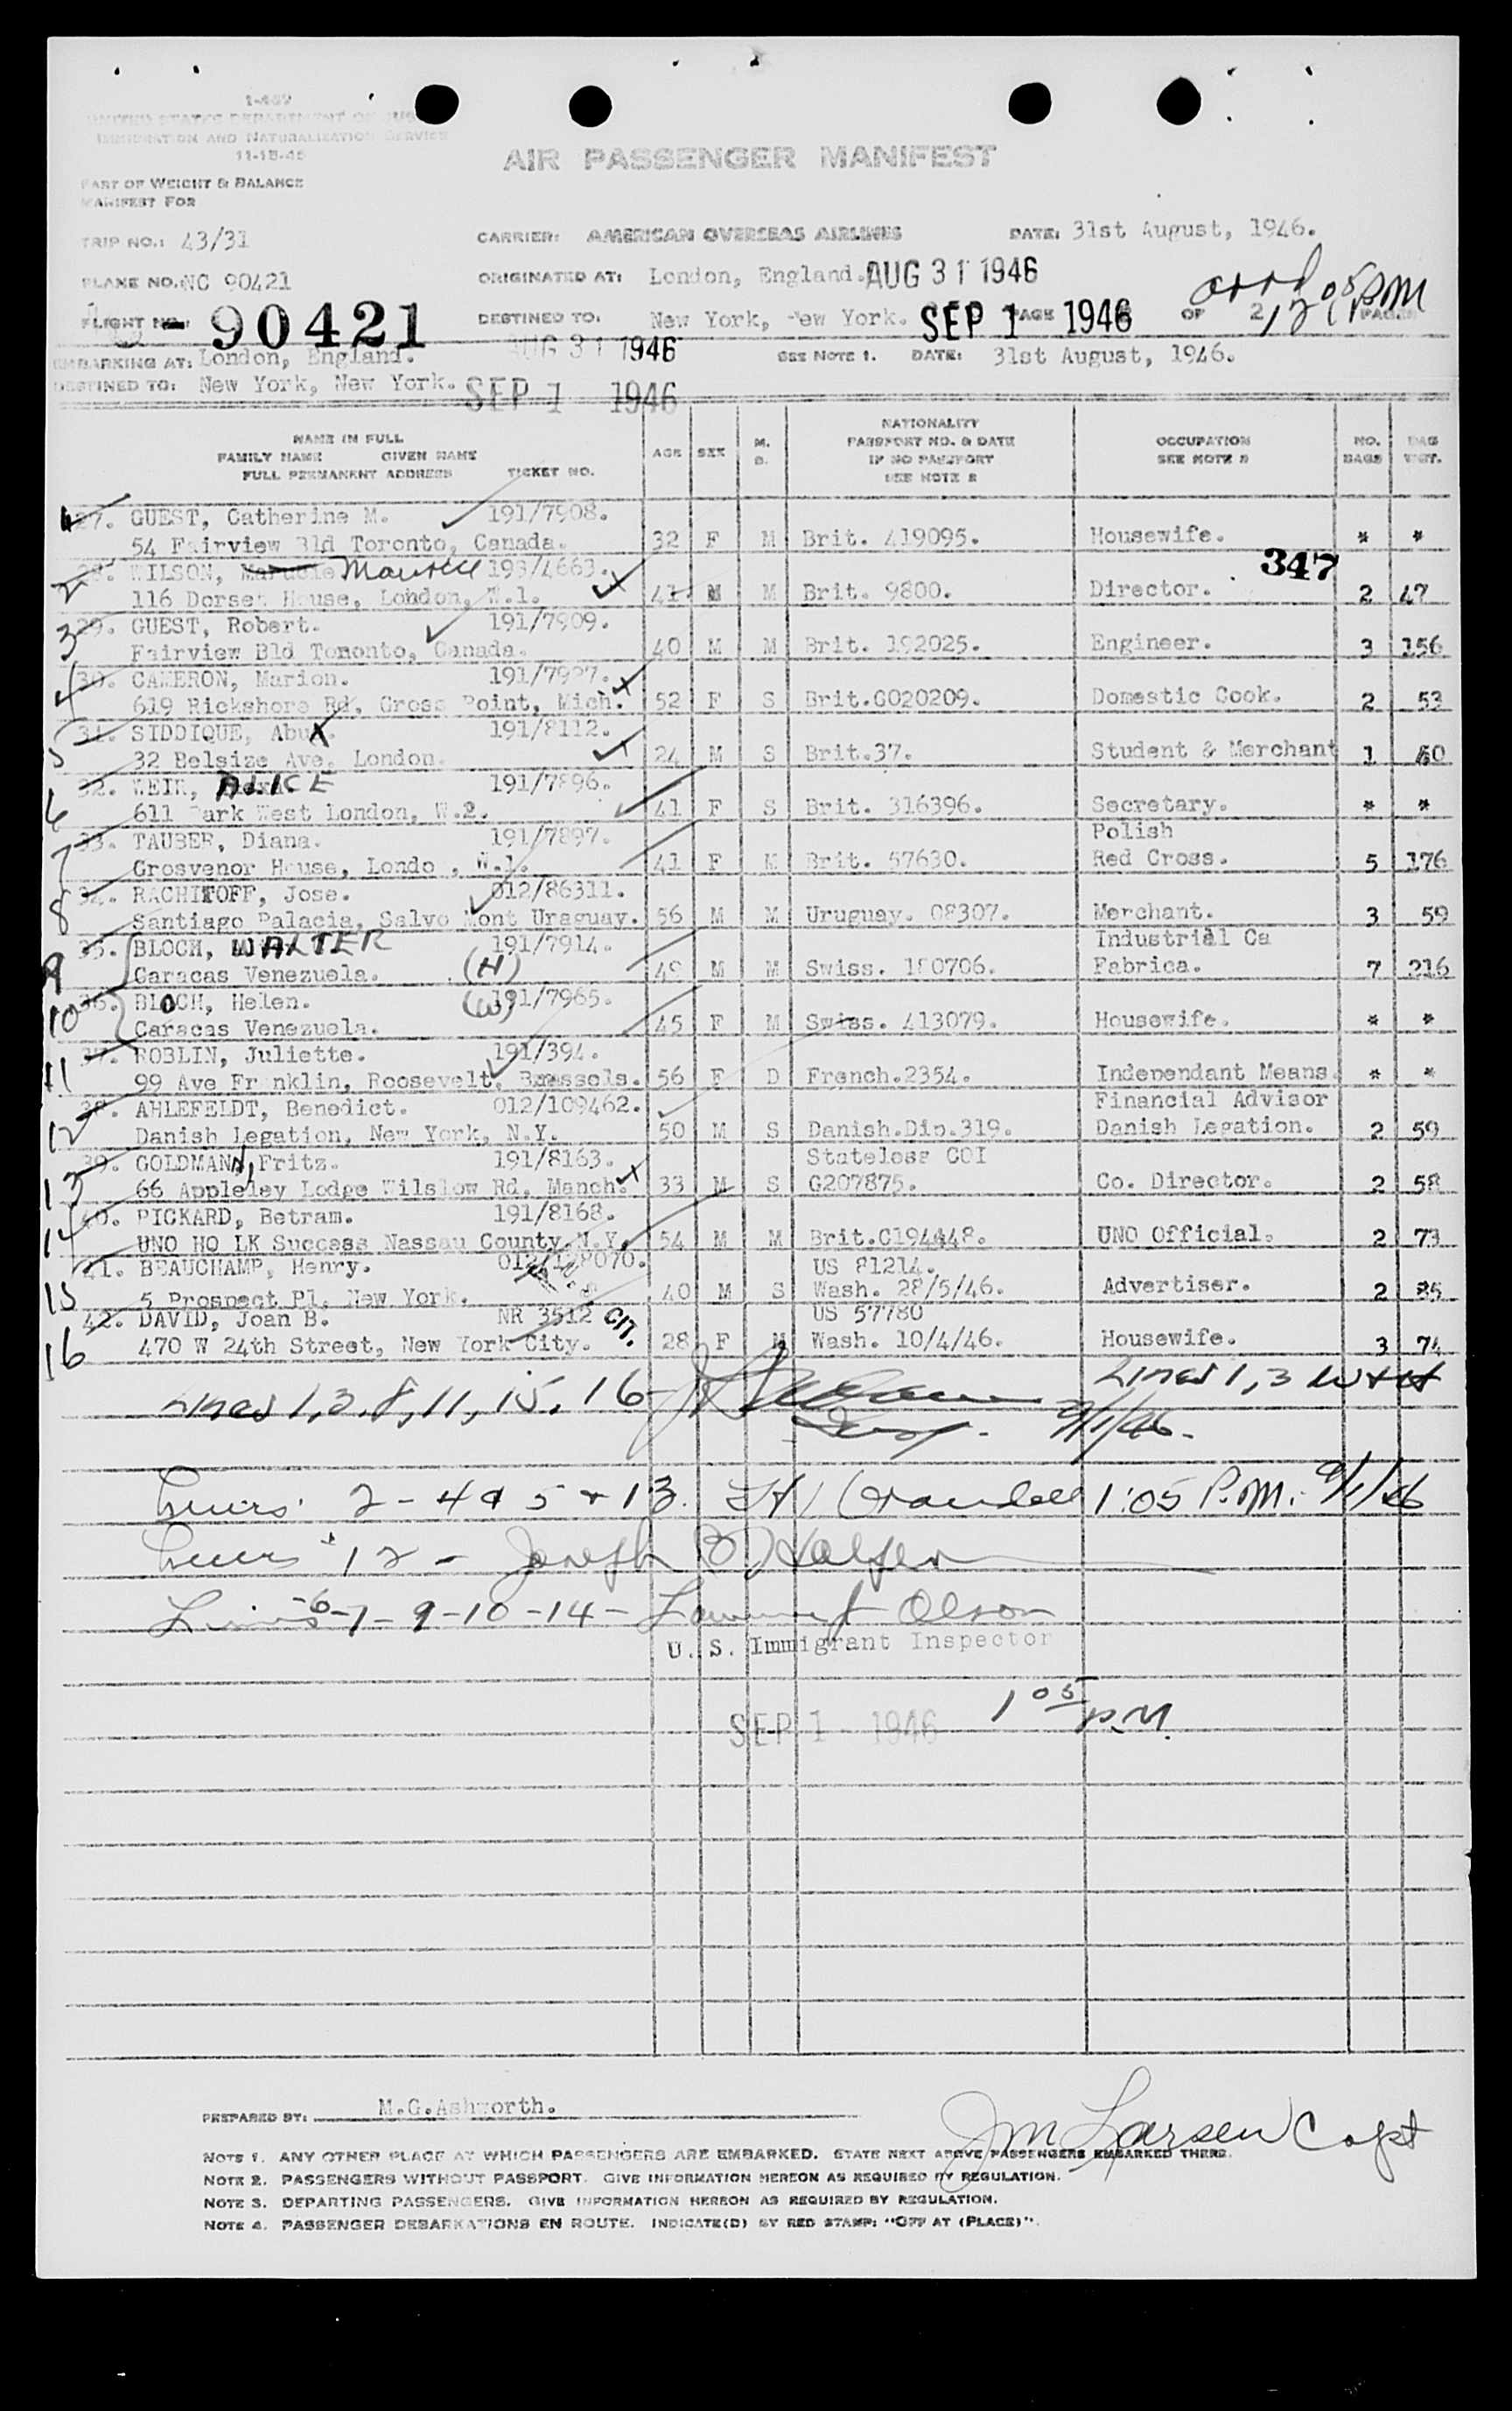 I-469
UNITED STATES DEPARTMENT OF JUS
IMMIGRATION AND NATURALIZATION SERVICE
11-15-45
AIR PASSENGER MANIFEST
PART OF WEIGHT & BALANCE
MANIFEST FOR
TRIP NO.: 43/31 CARRIER: AMERICAN OVERSEAS AIRLINES DATE: 31st August, 1946.
PLANE NO.: NC 90421 ORIGINATED AT: London, England. AUG 31 1946
FLIGHT NO.: - 90421 DESTINED TO: New York, New York. SEP 1 1946 PAGE OF 2 PAGES
AUG 31 1946
EMBARKING AT: London, England. SEE NOTE 1. DATE: 31st August, 1946.
DESTINED TO: New York, New York. SEP 1 1946
NAME IN FULL FAMILY NAME GIVEN NAME FULL PERMANENT ADDRESS TICKET NO. AGE SEX M. S. NATIONALITY PASSPORT NO. & DATE IF NO PASSPORT SEE NOTE 2 OCCUPATION SEE NOTE 3 NO. BAGS BAG WGT.
27. GUEST, Catherine M. 191/7908.
54 Fairview Bld Toronto, Canada. 32 F M Brit. 419095. Housewife. * *
347
2 28. WILSON, Maurice 193/4663.
116 Dorset House, London, W.1. 41 M M Brit. 9800. Director. 2 47
3 29. GUEST, Robert. 191/7909.
Fairview Bld Toronto, Canada. 40 M M Brit. 192025. Engineer. 3 156
4 30. CAMERON, Marion. 191/7997.
619 Rickshore Rd, Gross Point, Mich. 52 F S Brit.G020209. Domestic Cook. 2 53
5 31. SIDDIQUE, Abu. 191/8112.
32 Belsize Ave, London. 24 M S Brit.37. Student & Merchant 1 60
6 32. WEIR, ALICE 191/7896.
611 Park West London, W.2. 41 F S Brit. 316396. Secretary. * *
7 33. TAUBER, Diana. 191/7897. Polish
Grosvenor House, Londo , W.1. 41 F M Brit. 57630. Red Cross. 5 176
8 34. RACHITOFF, Jose. 012/86311.
Santiago Palacia, Salvo Mont Uraguay. 56 M M Uruguay. 08307. Merchant. 3 59
9 35. BLOCH, WALTER 191/7914. Industrial Ca
Caracas Venezuela. (H) 49 M M Swiss. 180706. Fabrica. 7 216
10 36. BLOCH, Helen. (W) 191/7965.
Caracas Venezuela. 45 F M Swiss. 413079. Housewife. * *
11 37. ROBLIN, Juliette. 191/394.
99 Ave Franklin, Roosevelt, Brussels. 56 F D French.2354. Independant Means. * *
12 38. AHLEFELDT, Benedict. 012/109462. Financial Advisor
Danish Legation, New York, N.Y. 50 M S Danish.Dip.319. Danish Legation. 2 59
13 39. GOLDMANN, Fritz. 191/8163. Stateless COI
66 Appleley Lodge Wilslow Rd, Manch. 33 M S G207875. Co. Director. 2 58
14 40. PICKARD, Betram. 191/8168.
UNO HQ LK Success Nassau County, N.Y. 54 M M Brit.C194448. UNO Official. 2 73
41. BEAUCHAMP, Henry. 012/128070. US 81214.
15 5 Prospect Pl, New York. 40 M S Wash. 28/5/46. Advertiser. 2 85
42. DAVID, Joan B. NR 3512 CIT. US 57780
16 470 W 24th Street, New York City. 28 F M Wash. 10/4/46. Housewife. 3 74
Lines 1, 3, 8, 11, 15, 16 Lines 1, 3 W + H
Insp. 9/1/46.
Lines 2 - 4 & 5 + 13. 1:05 P.M. 9/1/46
Lines 12 - Joseph Halpern
Lines 6 - 7 - 9 - 10 - 14 - Olson
U. S. Immigrant Inspector
SEP 1 - 1946 1 05 P.M.
PREPARED BY: M.G.Ashworth.
JM Larsen Capt
NOTE 1. ANY OTHER PLACE AT WHICH PASSENGERS ARE EMBARKED. STATE NEXT ABOVE PASSENGERS EMBARKED THERE.
NOTE 2. PASSENGERS WITHOUT PASSPORT. GIVE INFORMATION HEREON AS REQUIRED BY REGULATION.
NOTE 3. DEPARTING PASSENGERS. GIVE INFORMATION HEREON AS REQUIRED BY REGULATION.
NOTE 4. PASSENGER DEBARKATIONS EN ROUTE. INDICATE(D) BY RED STAMP: "OFF AT (PLACE)".